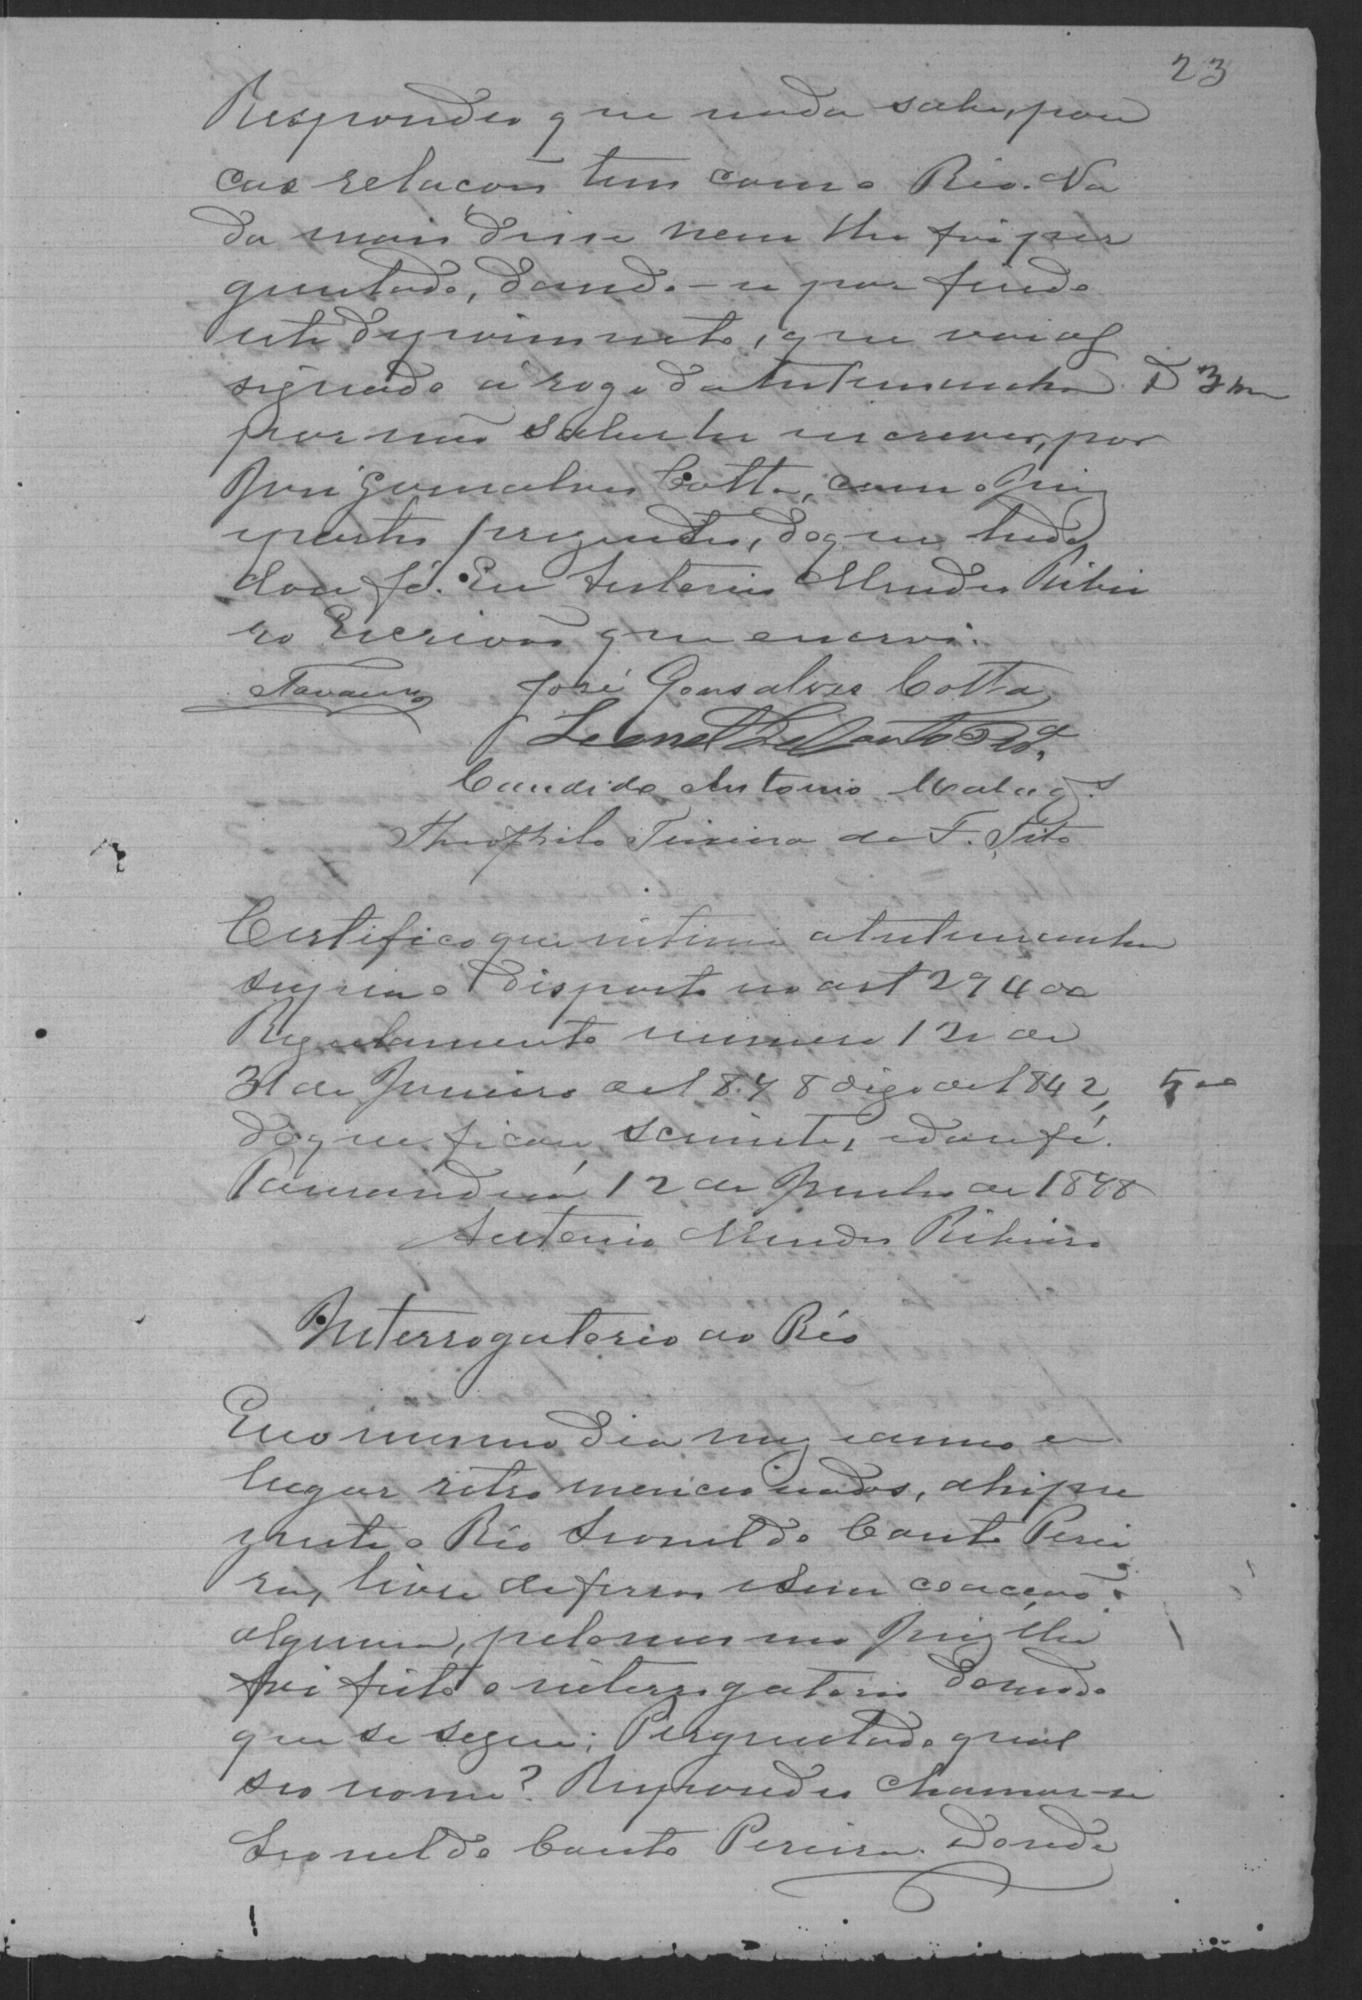 23
Respondeo que nada sabe, pou
cas relacoens tem com o Réo. Na
da mais disse nem lhe foi per
guntado, dando-se por findo
este depoimento, que vai as
signado á rogo da testemunha D 3
por não saber ler escrever, por
José Gonsalves Cotta, com o Juiz
e partes prezentes, do que tudo
dou fé. Eu Antonio Mendes Ribei
ro Escrivão que escrevi.
Tavares José Gonsalves Cotta
Leonel do Canto
Candido Antonio
Theophilo Teixeira da F. Tito
Certifico que intimei a testemunha
supra o disposto no art 294 do
Regulamento numero 120 de
31 de Janeiro de 1878 digo de 1842, 500
do que ficou sciente, e dou fé.
12 de Junho de 1878
Antonio Mendes Ribeiro
Interrogatorio ao Réo
E no mesmo dia mez e anno e
lugar retro mencionados, ahi pre
zente o Réo Leonel do Canto Perei
ra, livre de ferros e sem coacção
alguma, pelo mesmo Juiz lhe
foi feito o interrogatorio do modo
que se segue; Perguntado qual
seo nome? Respondeo chamar-se
Leonel do Canto Pereira. Donde